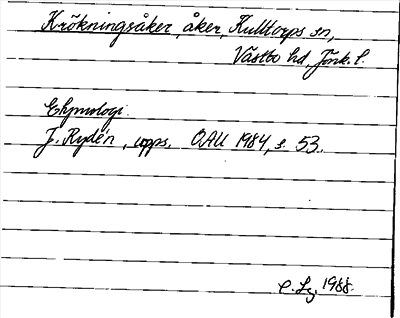 Krökningsåker, åker, Kulltorps sn,
Västbo hd, Jönk. l.
Etymologi.
J. Rydén, upps. OAU 1984, s. 53.
C. Lg. 1988.